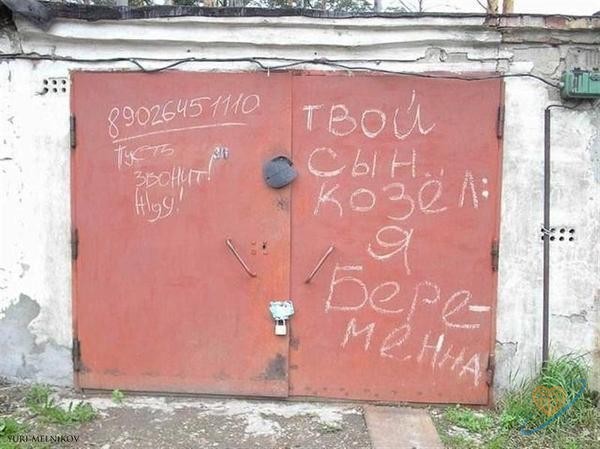 89026451110
Пусть
звонит!
Жду!
твой
сын
козёл:
я
Бере-
менна
YURI-MELNIKOV